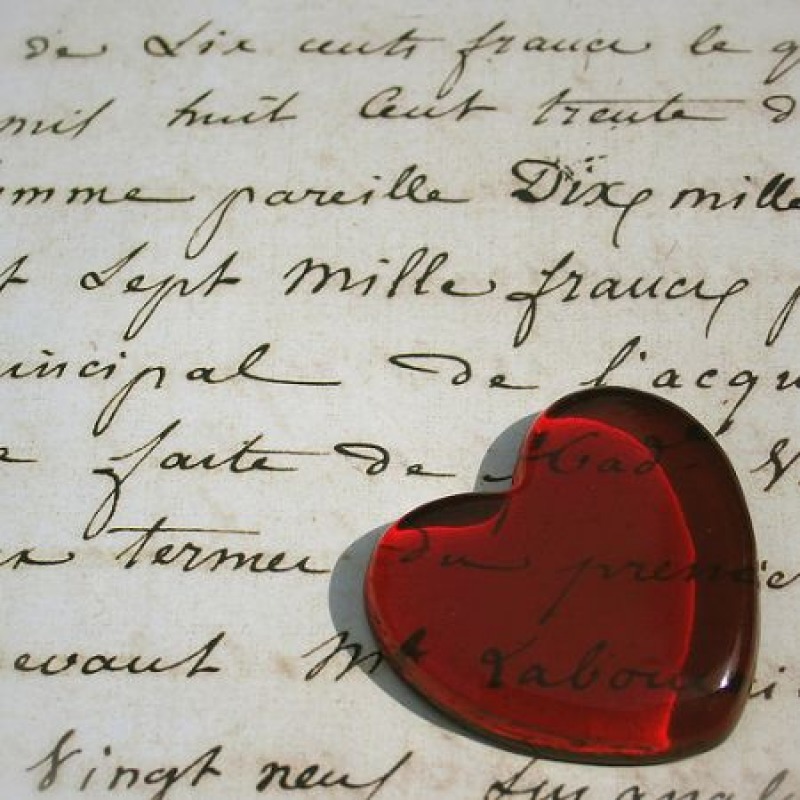 de Six cents francs le
mil huit Cent trente
pareille Dix mille
Sept mille francs
de l'acqu
faite de Mad^e
termes du premier
evant M^e Labour
Vingt neuf